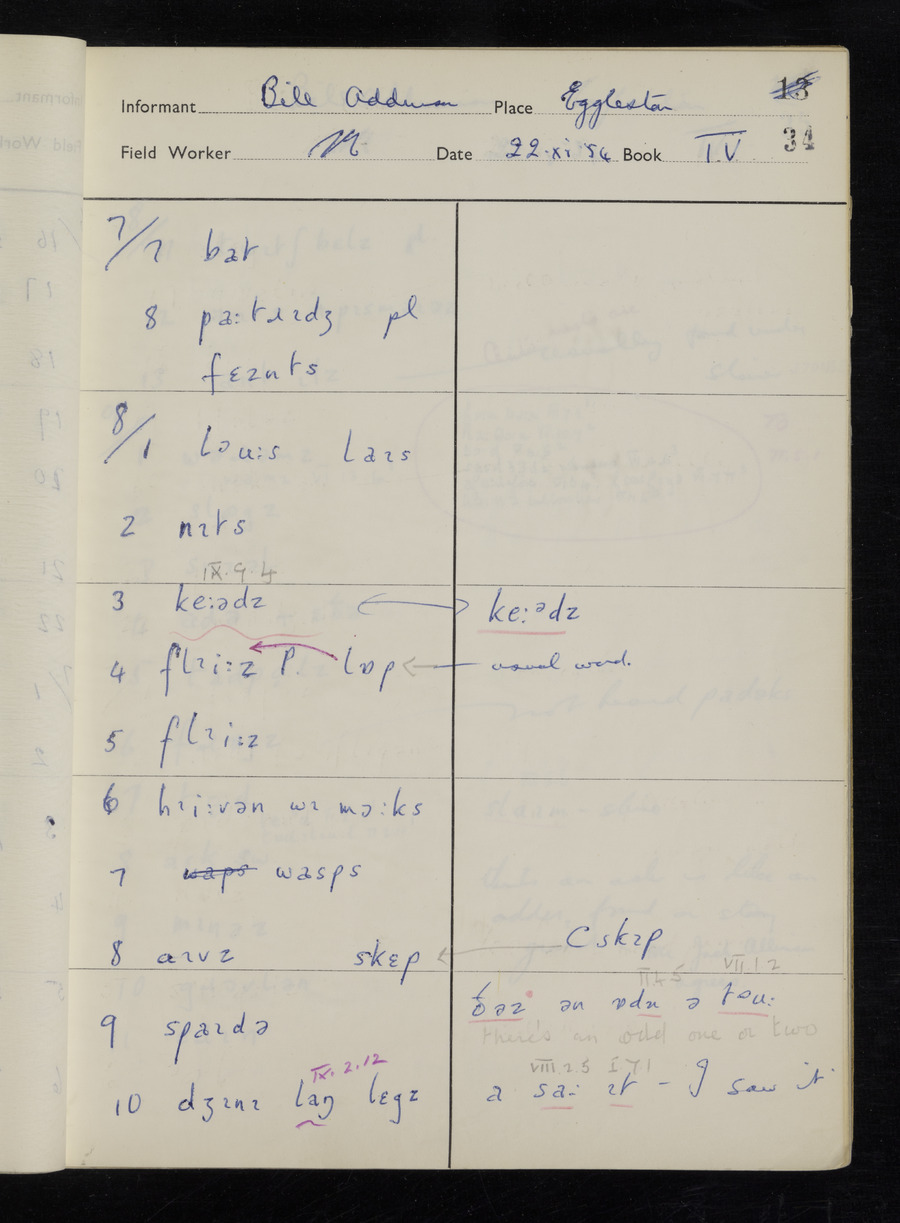 Informant Bill Addison Place Eggleston 13
Field Worker Date 22.xi 54 Book IV 34
7/7 bat
8 pa:tɹɪdʒ pl
fɛznts
8/1 ləu:s laɪs
2 nɪts
IX.9.4
3 ke:ədz ke:ᵊdz
4 flɪi:z P. lɒp usual word.
5 flɪi:z
6 hɪi:vən wɪ mɔ:ks
7 waps wasps
8 aɪvz skɛp C skɪp
II.4.5 VII.1.2
9 spaɪdə ðəz ən ɒdn ə təu:
there's an odd one or two
IX.2.12 VIII.2.5 I.7.1
10 dʒɪnɪ laŋ lɛgz a sa: ɪt - I saw it